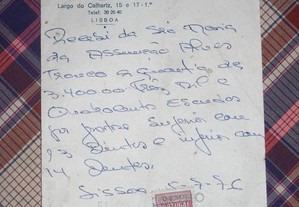 Largo do Calhariz, 15 e 17-1.º
Telef. 36 20 40
LISBOA
Recebi da Sra Maria
da Assunção Alves
Tronco a quantia de
3.400.00 Três Mil e
Quatrocentos Escudos
por prótese superior com
13 dentes e inferior com
14 Dentes.
Lisboa 5-7-76
PORTUGAL